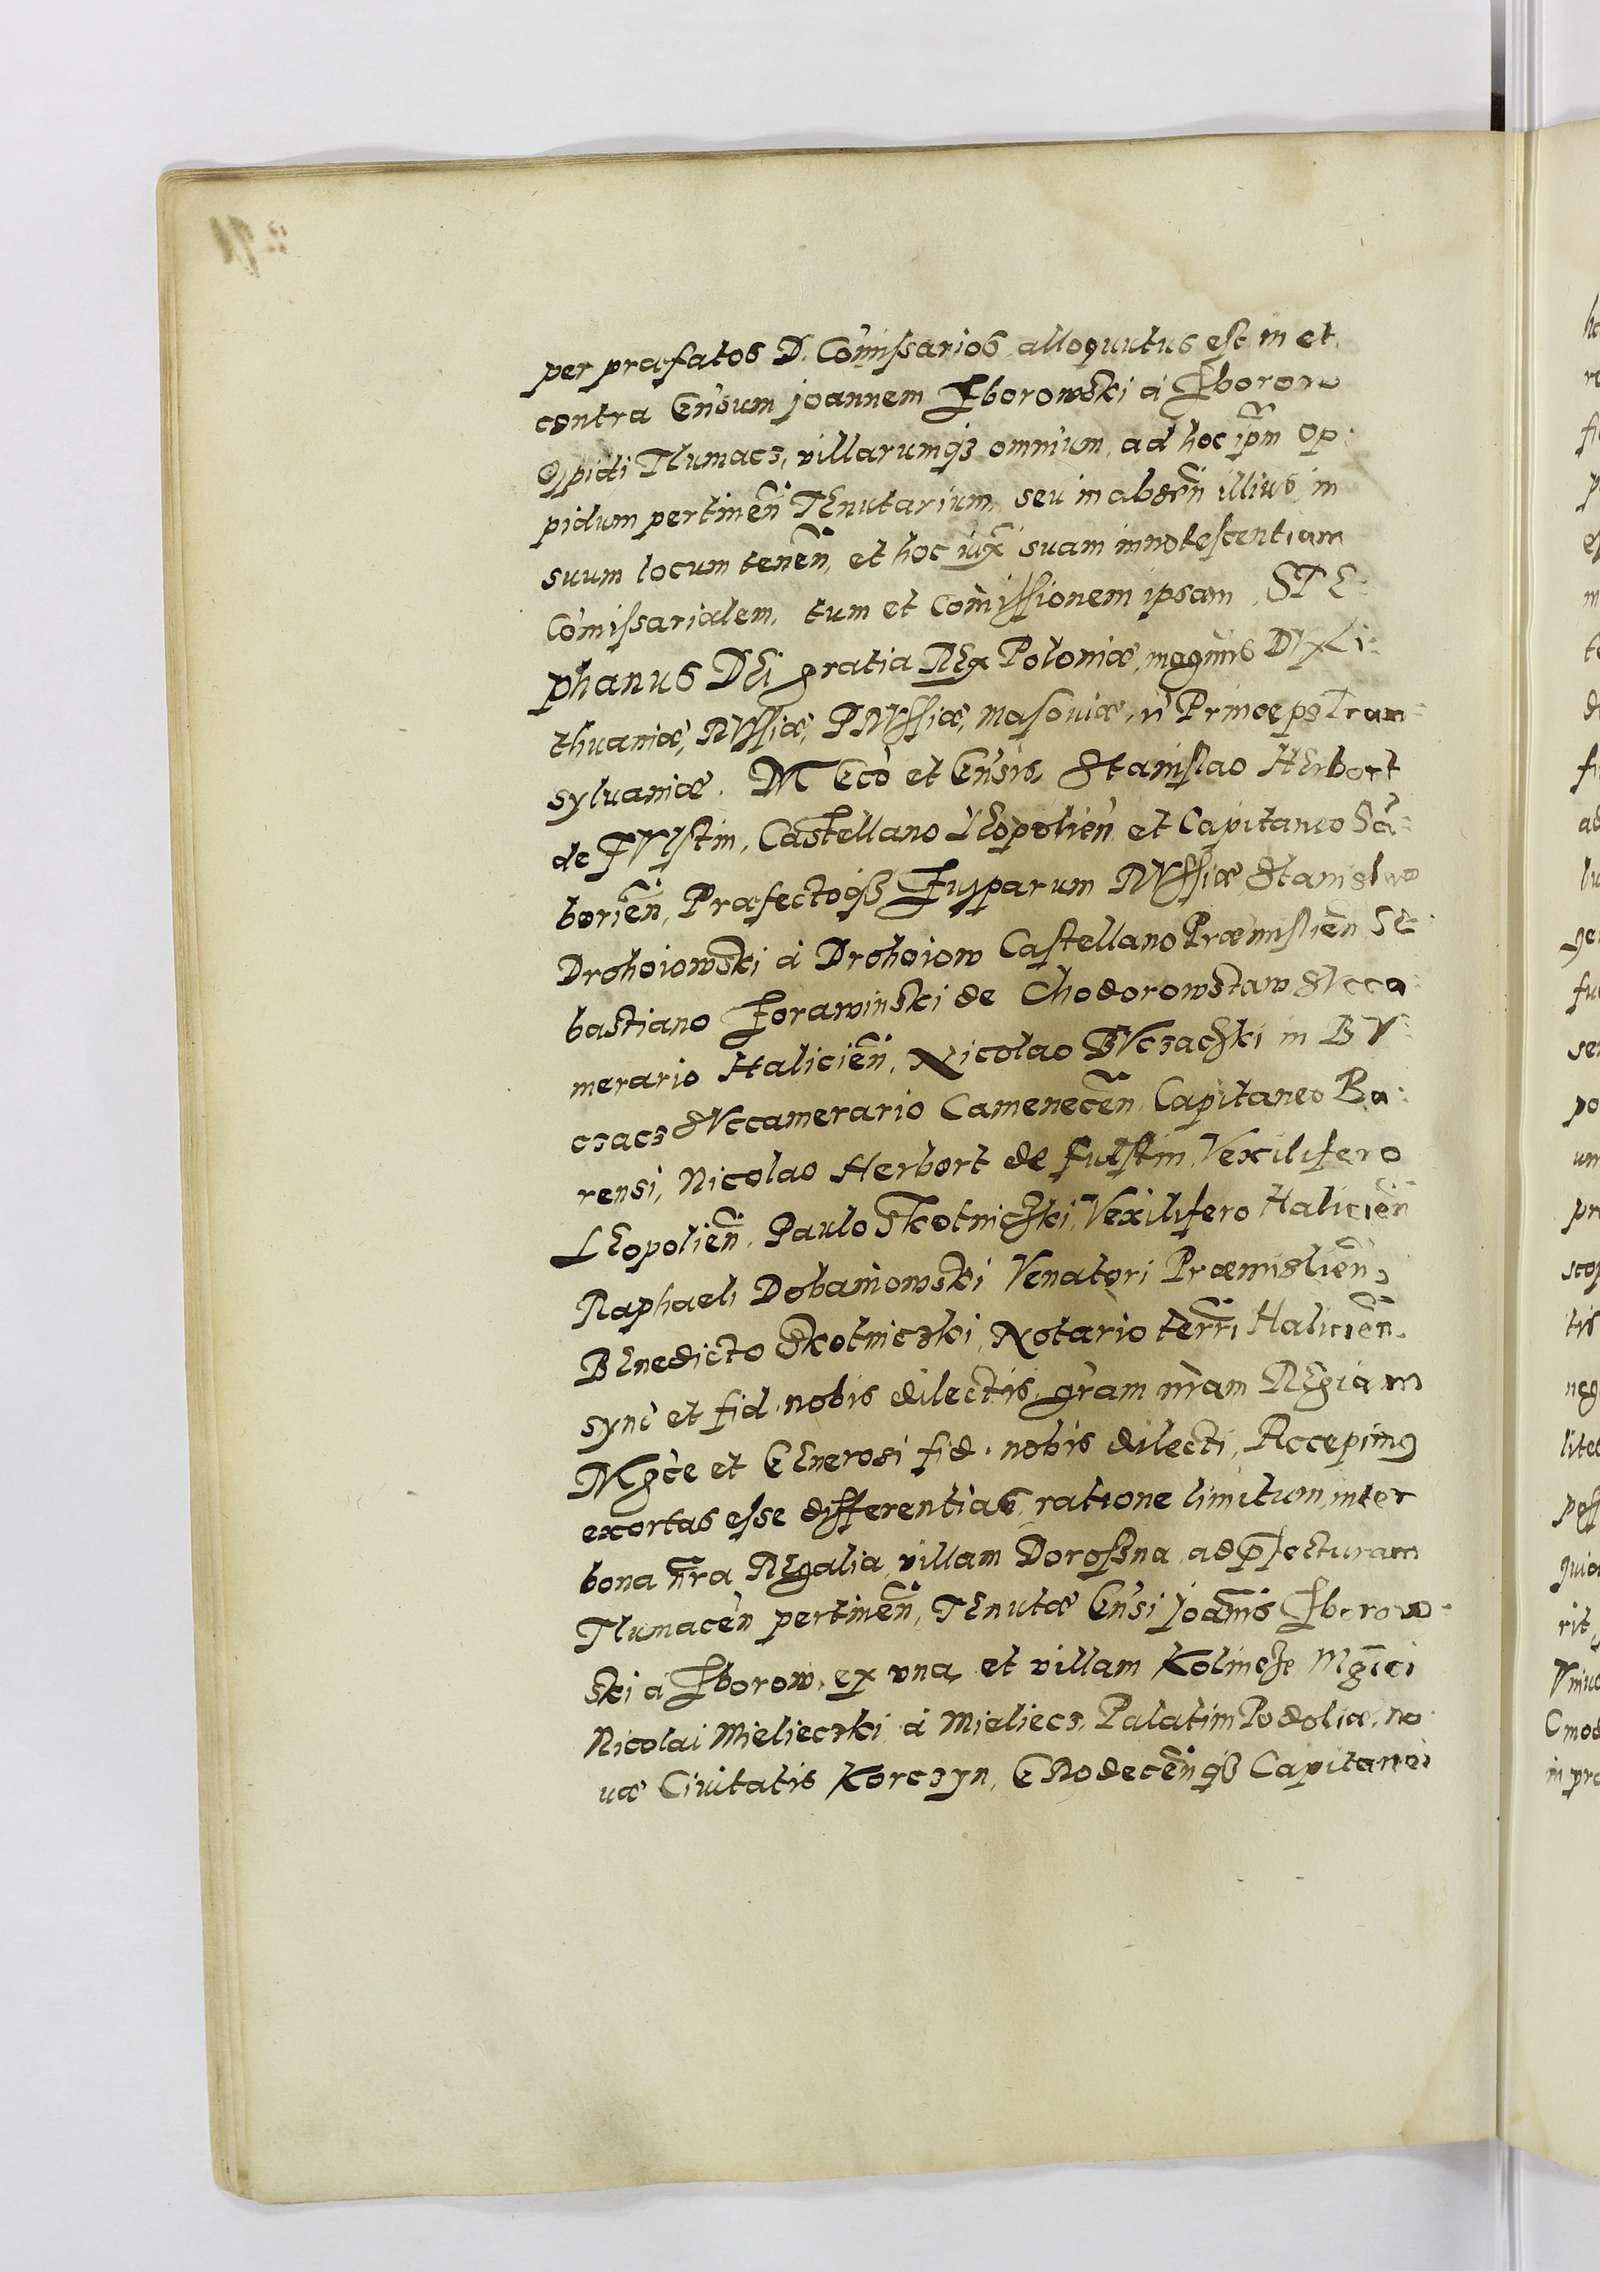 per præfatos D. Comissarios alloqvutus est in et
contra Gn̄sum joannem Zborowski à Zborow
Oppidi Tlumacz, villarumqȝ omnium, ad hoc ip̄m op:
pidum pertineñ TEnutarium, seu in abseñ illius, in
suum locum teneñ, et hoc iux̄ suam innotescentiam
Comissarialem, tum et Comissionem ipsam, STE:
phanus DEi gratia REx Poloniæ, magnus DVx Li:
thuaniæ, RVssiæ, PRVssiæ, masoviæ, Princeps Tran:
sylvaniæ. M Gco et Gn̄sis, Stanislao HErbort
de FVlstin, Castellano LEopolień et Capitaneo Sā:
borień, Præfectoqȝ Zupparum RVssiæ Stanislao
Drohoiowski à Drohoiow Castellano Præmislień SE:
bastiano Zorawinski de Chodorowstaw SVcca:
merario Halicień, Nicolao BVczaczki in BV:
czacz SVccamerario Camenecēn, Capitaneo Ba:
rensi, Nicolao Herbort de fulstin, Vexilifero
LEopolień, Paulo Skotniczki, Vexilifero Halicień
Raphaeli Dobaniowski Venatori Præmislień,
BEnedicto Skotniczki, Notario terr̄i Halicień.
sync et fid. nobis dilectis, gr̄am nr̄am REgiam
Mgc̄e et GEnerosi fid. nobis dilecti, Accepimꝰ
exortas esse differentias, ratione limitum, inter
bona nr̄a REgalia, villam Doroszna, ad p̄fecturam
Tlumaceń pertineñ, TEnutæ Gn̄si joānis Zborow:
ski à Zborow, ex vna, et villam Kolincze Mgc̄i
Nicolai Mielieczki à Mieliecz, Palatini Podoliæ, no:
uæ Ciuitatis Korczyn, GRodecēnqȝ Capitanei